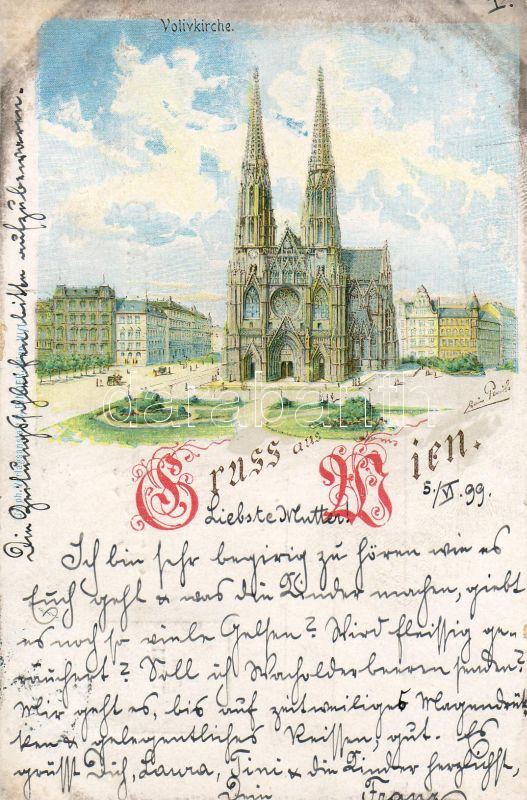 I.
Votivkirche.
Gruss aus Wien.
5./VI. 99.
Liebste Mutter!
Ich bin sehr begirig zu hören wie es
Euch geht & was die Kinder machen, giebt
es noch so viele Gelsen? Wird fleissig ge-
räuchert? Soll ich Wacholderbeeren senden?
Mir geht es, bis auf zeitweiliges Magendrük
ken & gelegentliches Reissen, gut. Es
grüsst Dich, Laura, Tini & die Kinder herzlichst,
Dein Franz
Die Zeitungsausschnitte bitte aufzubewaren.
databanth